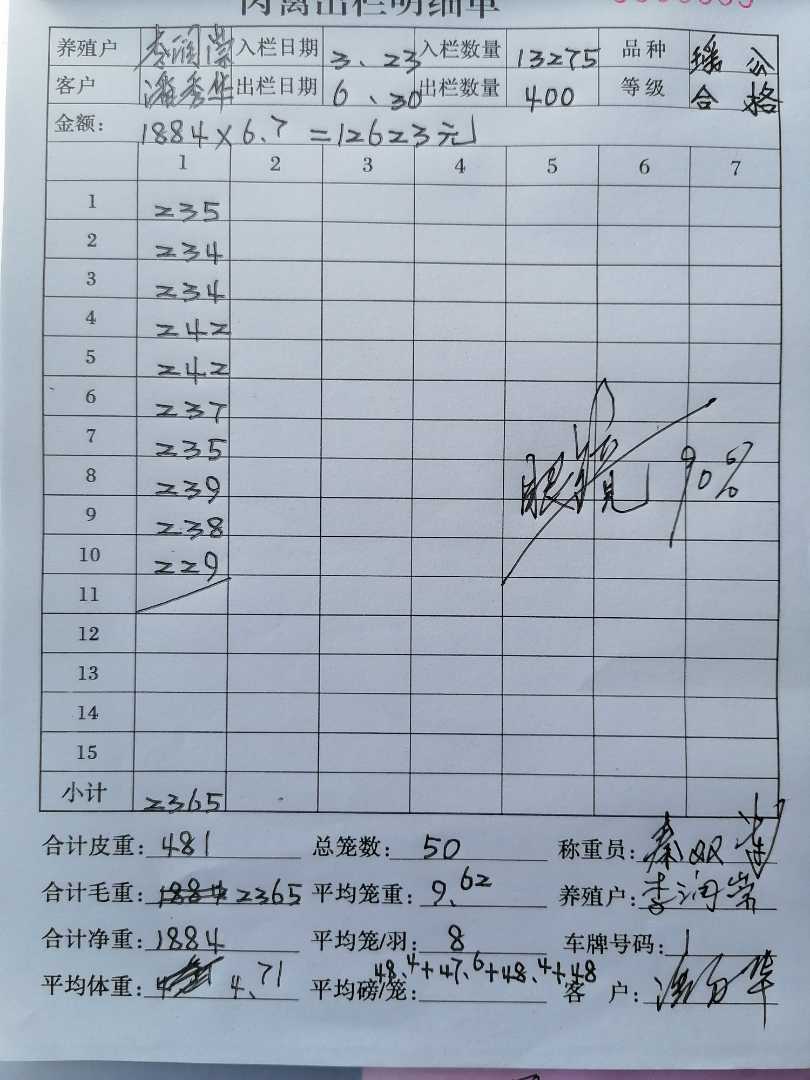 肉禽出栏明细单
养殖户 李润崇 入栏日期 3、23 入栏数量 13275 品种 瑶公
客户 潘秀华 出栏日期 6、30 出栏数量 400 等级 合格
金额: 1884×6.7=12623元
1 2 3 4 5 6 7
1 235
2 234
3 234
4 242
5 242
6 237
7 235
8 239
9 238
10 229
眼镜 90%
11
12
13
14
15
小计 2365
合计皮重: 481 总笼数: 50 称重员: 秦
合计毛重: 2365 平均笼重: 9.62 养殖户: 李润崇
合计净重: 1884 平均笼/羽: 8 车牌号码:
平均体重: 4、71 平均磅/笼: 48.4+47.6+48.4+48 客户: 潘秀华